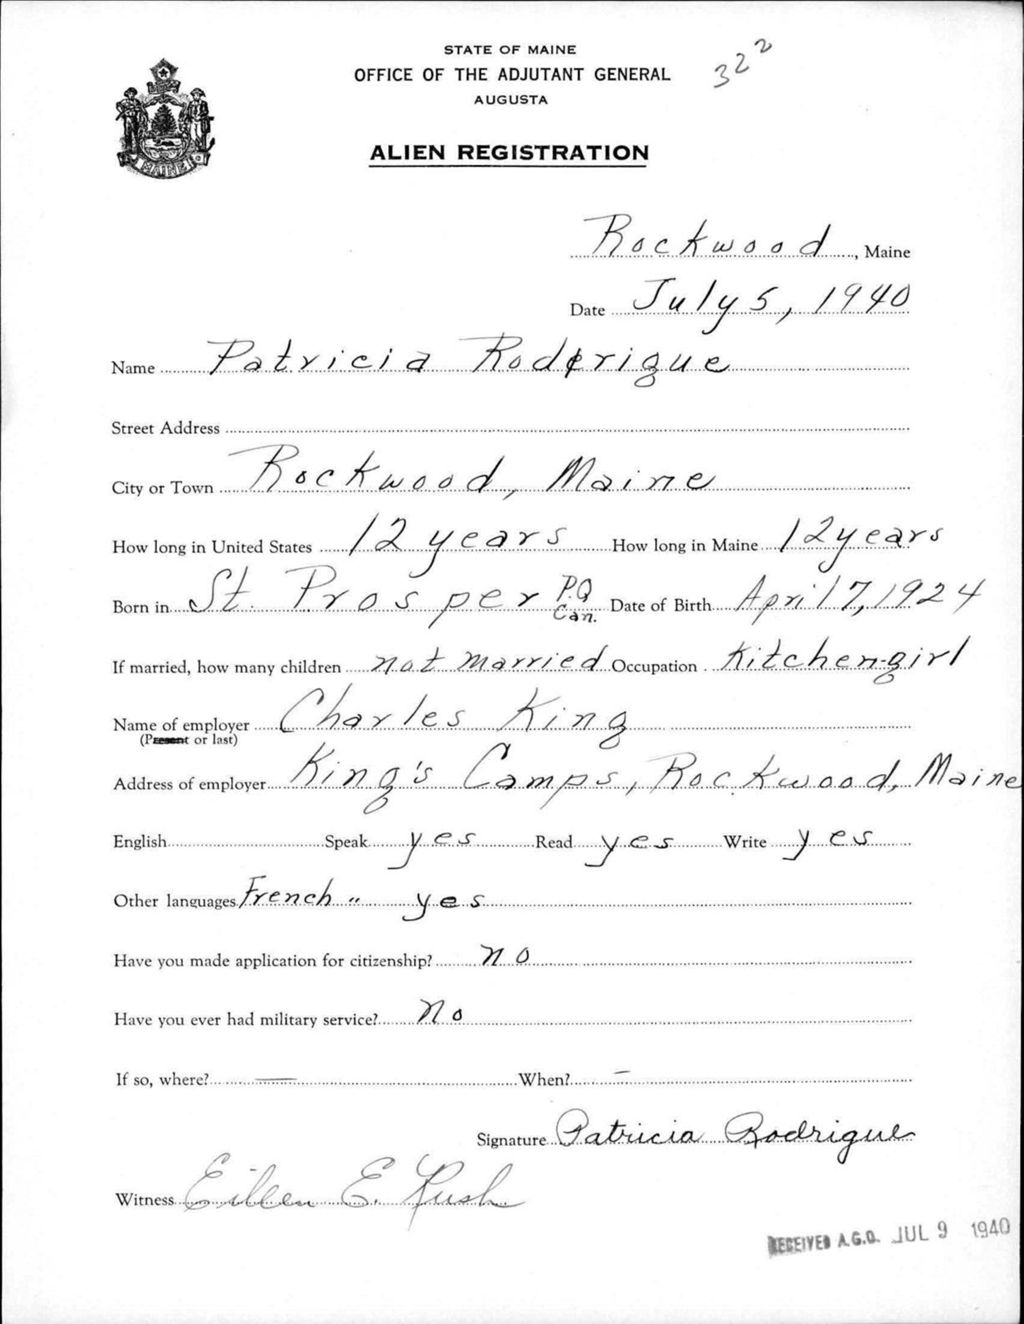 STATE OF MAINE
OFFICE OF THE ADJUTANT GENERAL
AUGUSTA
322
ALIEN REGISTRATION
MAINE
Rockwood, Maine
Date July 5, 1940
Name Patricia Rodrigue
Street Address
City or Town Rockwood, Maine
How long in United States 12 years How long in Maine 12 years
Born in St. Prosper P.Q. Can. Date of Birth April 7, 1924
If married, how many children not married Occupation Kitchen-girl
Name of employer Charles King
(Present or last)
Address of employer King's Camps, Rockwood, Maine
English Speak yes Read yes Write yes
Other languages French " yes
Have you made application for citizenship? no
Have you ever had military service? No
If so, where? — When? —
Signature Patricia Rodrigue
Witness Eileen E. Rush
RECEIVED A.G.O. JUL 9 1940